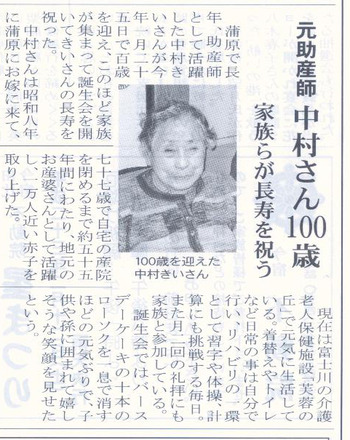 元助産師 中村さん100歳
家族らが長寿を祝う
蒲原で長
年、助産師
として活躍
した中村き
いさんが今
年一月二十
五日で百歳
を迎え、このほど家族
が集まって誕生会を開
いてきいさんの長寿を
祝った。
中村さんは昭和八年
に蒲原にお嫁に来て、
七十七歳で自宅の産院
を閉めるまで約五十五
年間にわたり、地元の
お産婆さんとして活躍
し、一万人近い赤子を
取り上げた。
100歳を迎えた
中村きいさん
現在は富士川の介護
老人保健施設「芙蓉の
丘」で元気に生活して
いる。着替えやトイレ
など日常の事は自分で
行い、リハビリの一環
として習字や体操、計
算にも挑戦する毎日。
また月二回の礼拝にも
家族と参加している。
誕生会ではバース
デーケーキの十本の
ローソクを一息で消す
ほどの元気ぶりで、子
供や孫に囲まれて嬉し
そうな笑顔を見せた
という。